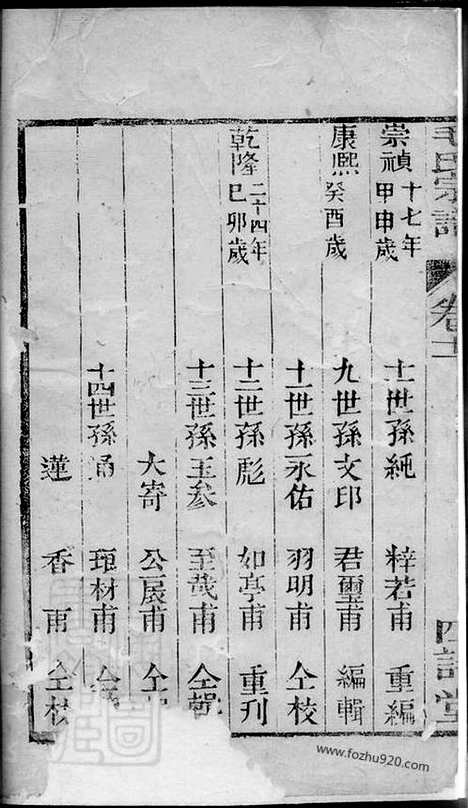 毛氏宗譜 卷十一 四詩堂
崇禎十七年甲申歲 十一世孫純 梓若甫 重編
康熙癸酉歲 九世孫文印 君璽甫 編輯
十一世孫永佑 羽明甫 仝校
乾隆二十四年己卯歲 十二世孫彪 如亭甫 重刊
十三世孫玉參 至哉甫 仝輯
大寄 公展甫 仝
十四世孫 材甫 仝
蓮 香甫 仝校
www.fozhu920.com